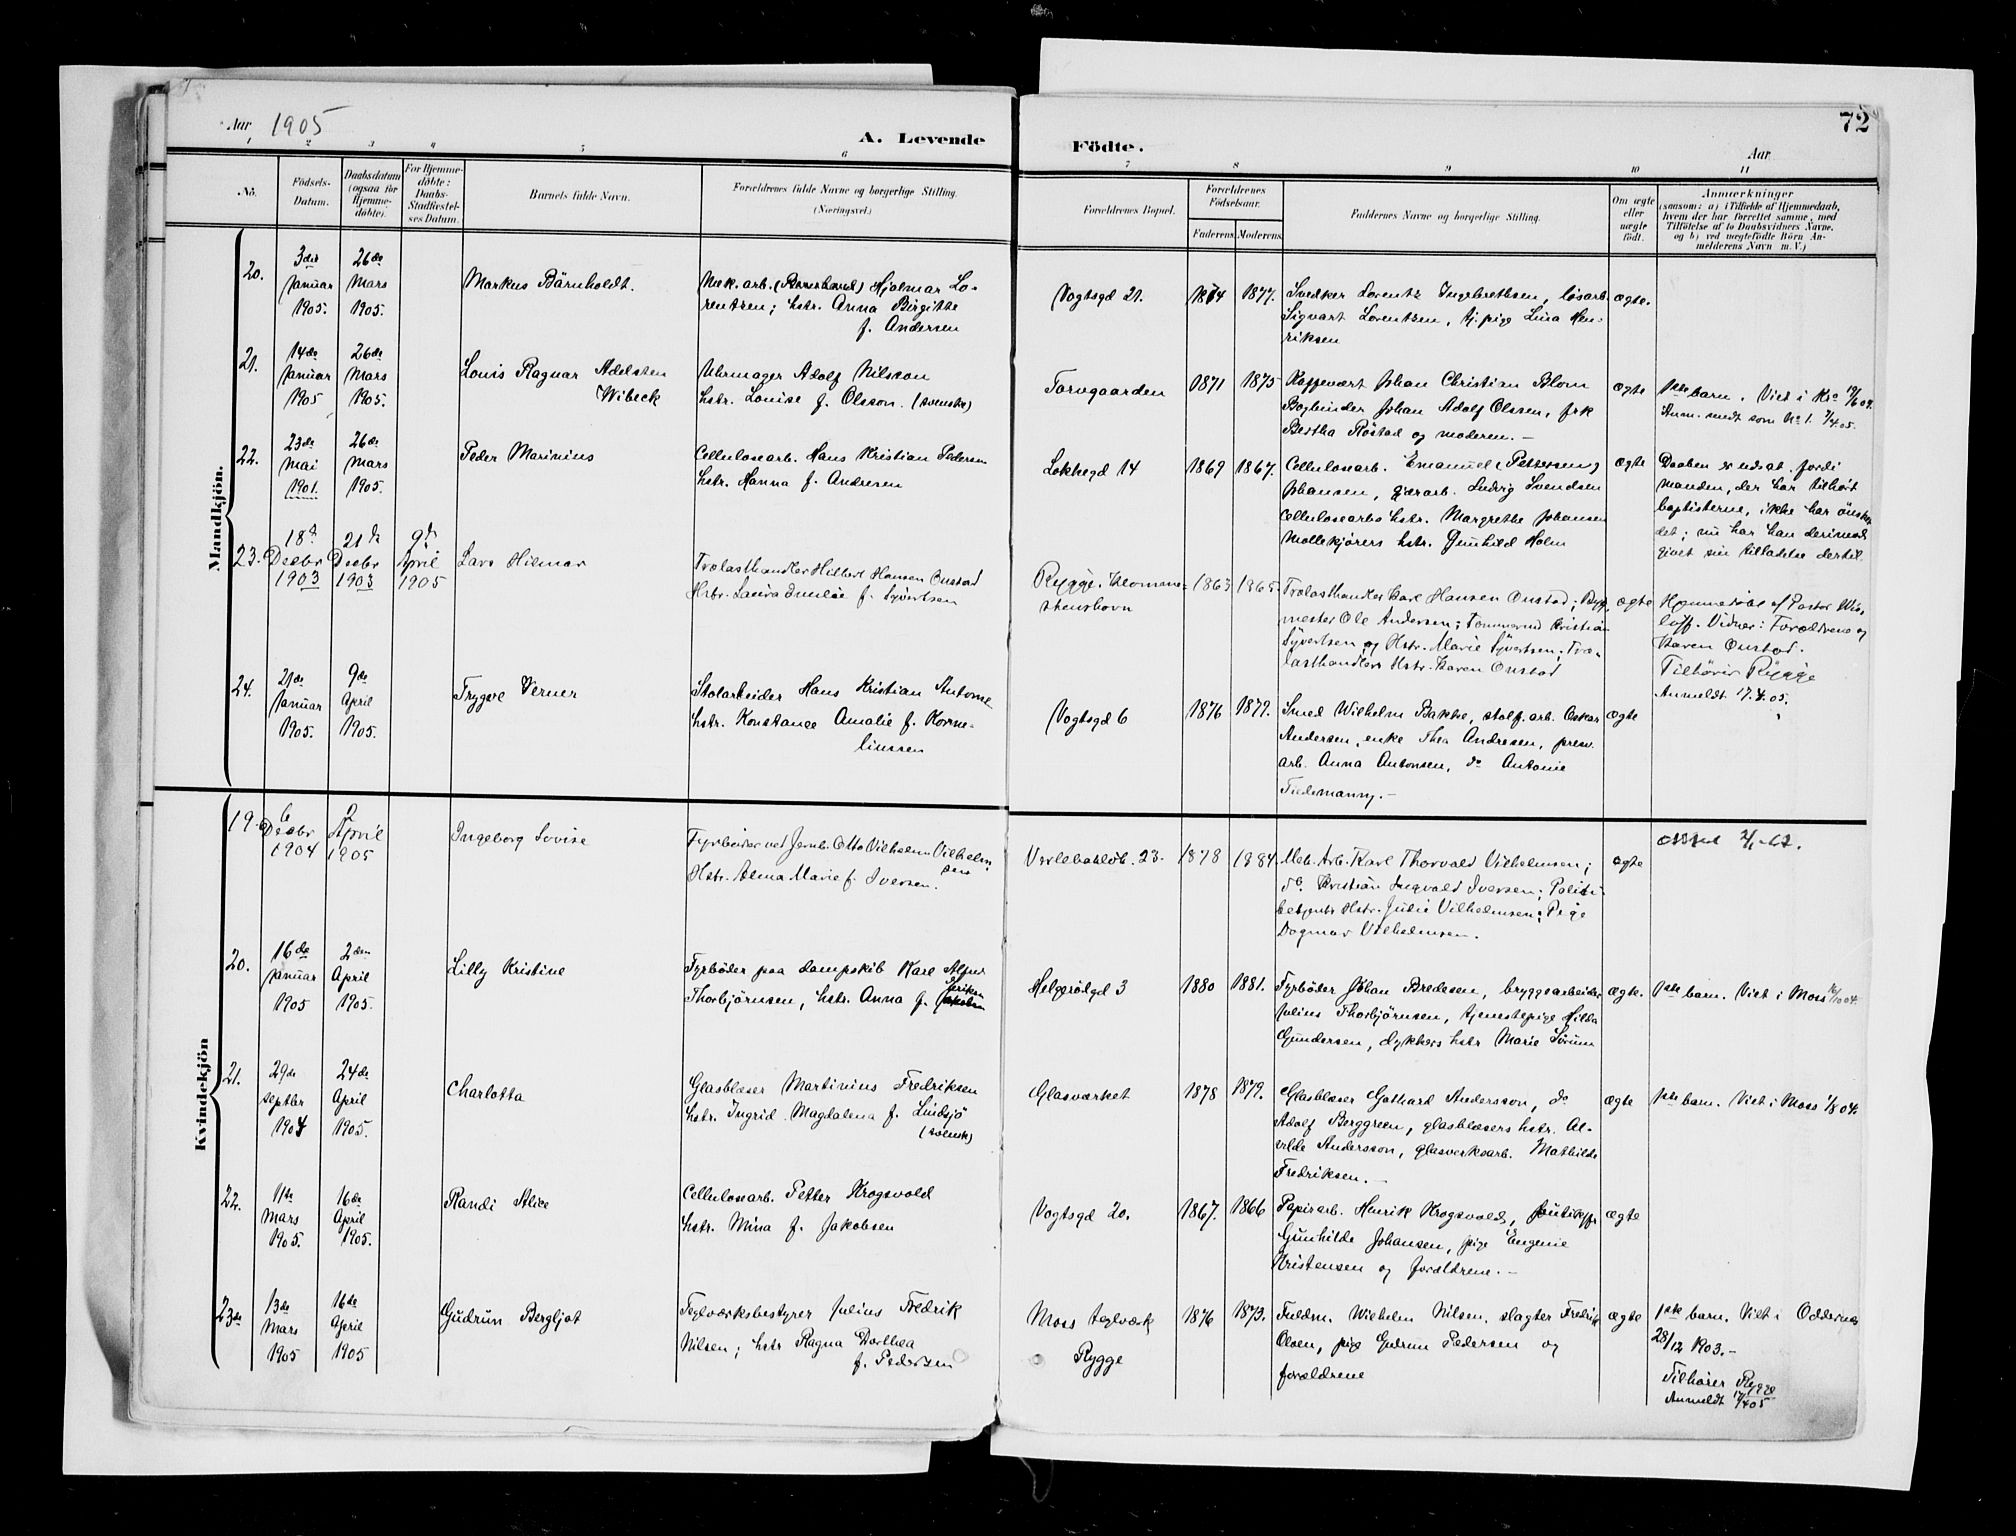 Aar 1905
A. Levende
Födte.
72
Aar
1 2 3 4 5 6 7 8 9 10 11
No.
Födsels-
Datum.
Daabsdatum
(ogsaa for
Hjemme-
döbte).
For Hjemme-
döbte:
Daabs-
Stadfæstel-
ses Datum.
Barnets fulde Navn.
Forældrenes fulde Navne og borgerlige Stilling.
(Næringsvei.)
Forældrenes Bopæl.
Forældrenes
Födselsaar.
Faderens. Moderens.
Faddernes Navne og borgerlige Stilling.
Om ægte
eller
uægte
født.
Anmærkninger
(saasom: a) i Tilfælde af Hjemmedaab,
hvem der har forrettet samme, med
Tilföielse af to Daabsvidners Navne,
og b) ved uægtefödte Börn An-
melderens Navn m. V.)
Mandkjön.
20.
3die
Januar
1905.
26de
Mars
1905.
Markus Bärnholdt.
Mek. arb. Hjalmar Lo-
rentzen; hstr. Anna Birgitte
f. Andersen
Vogtsgd 21.
1874
1877.
Snedker Lorentz Ingebrethsen, løsarb.
Sigvart Lorentzen, tj. pige Lina Hen-
riksen
ægte.
21.
14de
Januar
1905
26de
Mars
1905.
Louis Ragnar Adelsten
Wibeck
Uhrmager Adolf Nilsson
hstr. Louise f. Olsson. (svenske)
Torvgaarden
1871
1875
Kaffevært Johan Christian Blom
Bogbinder Johan Adolf Olssen, frk
Bertha Röstad og moderen. —
ægte
1ste barn. Viet i Kra
Anm. medt som No 1. 7/4.05.
22.
23de
Mai
1901.
26de
Mars
1905.
Peder Marinius
Cellulosearb. Hans Kristian Pedersen
hstr. Hanna f. Andresen
Lokkegd 14
1869
1867.
Cellulosearb. Emanuel (Pettersen)
Johansen, gjærarb. Ludvig Svendsen
Cellulosearbs hstr. Margrethe Johansen
Mollekjørers hstr. Gunhild Holm
ægte
Daaben er udsat fordi
manden, der har tilhørt
baptisterne, ikke har ønsket
det; nu har han derimod
givet sin tilladelse dertil.
23.
18de
Decbr
1903
21de
Decbr
1903
9de
April
1905
Lars Hilmar
Trælasthandler Hilbert Hansen Onstad
Hstr. Laura Emilie f. Syvertsen
Rygge. Blomme-
stenshovn
1863
1865.
Trælasthandler Karl Hansen Onstad; Byg-
mester Ole Andersen; Tømmermd Kristian
Syvertsen, og Hstr. Marie Syvertsen; Træ-
lasthandlers Hstr. Karen Onstad
ægte
Hjemmedøbt af Pastor Wis-
løff. Vidner: Forældrene og
Karen Onstad.
Tilhører Rygge
Anmeldt 17.4.05.
24.
21de
Januar
1905.
9de
April
1905.
Trygve Verner
Stolarbeider Hans Kristian Antonsen
hstr. Konstance Amalie f. Korne-
liussen
Vogtsgd 6
1876
1877.
Smed Wilhelm Bakke, stolf. arb. Oskar
Andersen, enke Thea Andresen, presv.
arb. Anna Antonsen, do Antonie
Tiedemanny. —
ægte
Kvindekjön
19.
6
Decbr
1904
2
April
1905
Ingeborg Lovise
Fyrbøder ved Jernb. Otto Vilhelm Vilhelm-
sen
Hstr. Alma Marie f. Iversen.
Værlebakløb. 23.
1878
1884.
Mek. Arb. Karl Thorvald Vilhelmsen;
do. Kristian Ingvald Iversen; Politi-
betjents Hstr. Julie Vilhelmsen; Pige
Dagmar Vilhelmsen.
ægte
20.
16de
Januar
1905
2den
April
1905.
Lilly Kristine
Fyrbøder paa dampskib Karl Alfur
Thorbjörnsen, hstr. Anna f.
Helgerödgd 3
1880
1881.
Fyrböder Johan Bredesen, bryggearbeider
Julius Thorbjörnsen, tjenestepige Hilda
Gundersen, dykkers hstr Marie Sørum
ægte.
1ste barn. Viet i Moss 16/10 04.
21.
29de
septbr
1904
24de
April
1905.
Charlotta
Glasblæser Martinius Fredriksen
hstr. Ingrid Magdalena f. Lindsjö
(svensk)
Glasværket
1878
1879.
Glasblæser Gothard Andersson, do
Adolf Berggreen, glasblæsers hstr. Al-
vilde Andersson, glasverksarb. Mathilde
Fredriksen. —
ægte
1ste barn. Viet i Moss 1/8 04.
22.
11te
Mars
1905.
16de
April
1905.
Randi Alice
Cellulosearb. Petter Krogsvold
hstr. Mina f. Jakobsen
Vogtsgd 20.
1867.
1866
Papirarb. Henrik Krogsvold, butikfr
Gunhilde Johansen, pige Eugenie
Kristensen og forældrene. —
ægte
23de
13de
Mars
1905
16de
April
1905
Gudrun Bergljot
Teglværksbestyrer Julius Fredrik
Nilsen; hstr Ragna Dorthea
f. Pedersen
Moss teglværk
Rygge
1876
1873.
Fuldm. Wilhelm Nilsen, slagter Fredrik
Olsen, pige Gudrun Pedersen og
forældrene
ægte
1ste barn. Viet i Oddernes
28/12 1903. —
Tilhører Rygge
Anmeldt 17/4 05